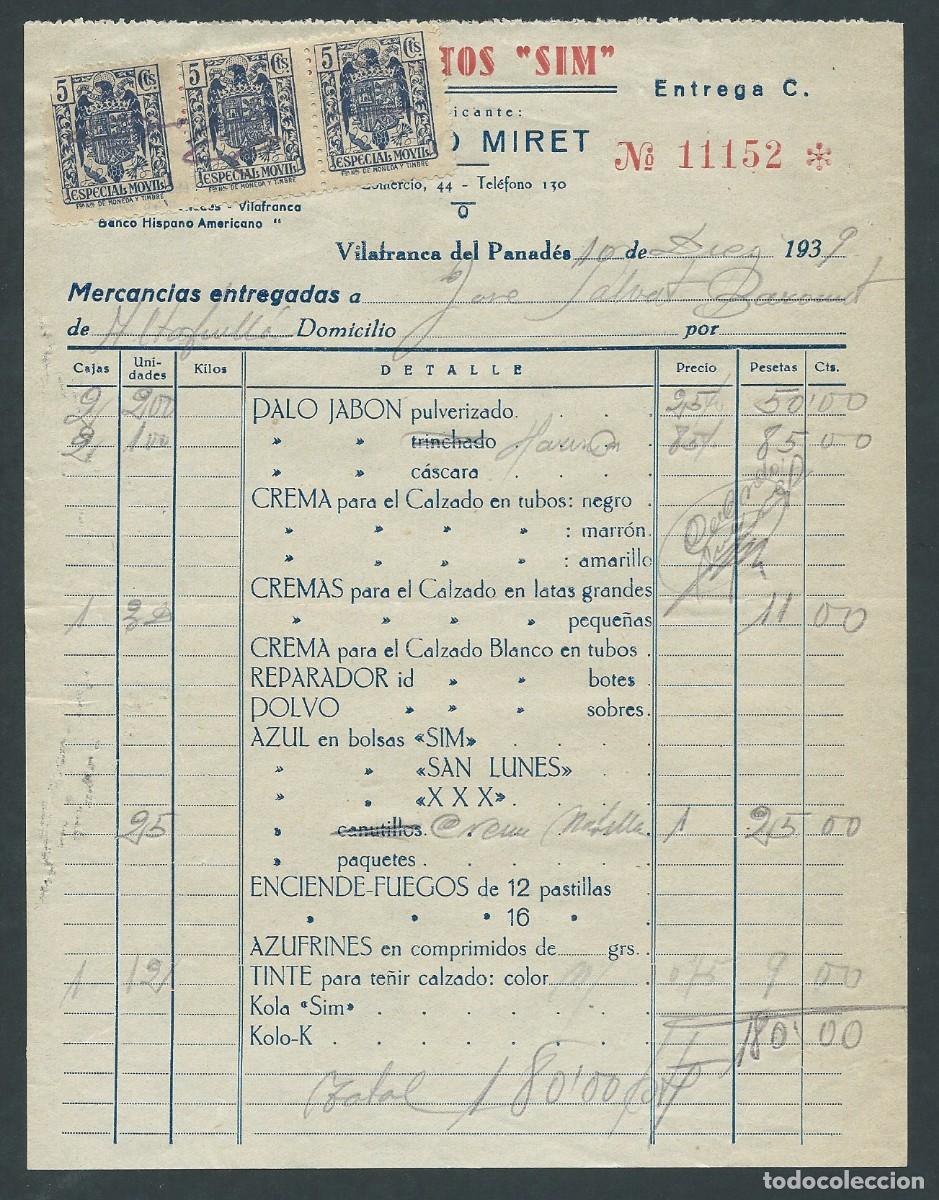 5 Cts. 5 Cts. 5 Cts.
ESPECIAL MOVIL ESPECIAL MOVIL ESPECIAL MOVIL
DE MONEDA Y TIMBRE DE MONEDA Y TIMBRE DE MONEDA Y TIMBRE
TOS "SIM"
Entrega C.
icante:
O MIRET
Nº 11152 *
Comercio, 44 - Teléfono 130
- Vilafranca
Banco Hispano Americano "
Vilafranca del Panadés 10 de 1939
Mercancias entregadas a José Salvat
de Altafulla Domicilio por
Cajas Uni-dades Kilos DETALLE Precio Pesetas Cts.
2 200 PALO JABON pulverizado. . . . 25 50'00
2 100 » » trinchado 85 85 00
» » cáscara
CREMA para el Calzado en tubos: negro .
» » » » : marrón.
» » » » : amarillo
CREMAS para el Calzado en latas grandes
1 » » » » pequeñas 11 00
CREMA para el Calzado Blanco en tubos .
REPARADOR id » » botes .
POLVO » » » sobres .
AZUL en bolsas «SIM» . . . .
» » «SAN LUNES» .
» » «X X X» . . . .
25 » canutillos. Crema 1 25 00
» paquetes . . . . .
ENCIENDE-FUEGOS de 12 pastillas .
» » » 16 » .
AZUFRINES en comprimidos de grs.
1 12 TINTE para teñir calzado: color 0'75 9 00
Kola «Sim» . . . . .
Kolo-K . . . . . 180'00
Total 180'00
todocoleccion